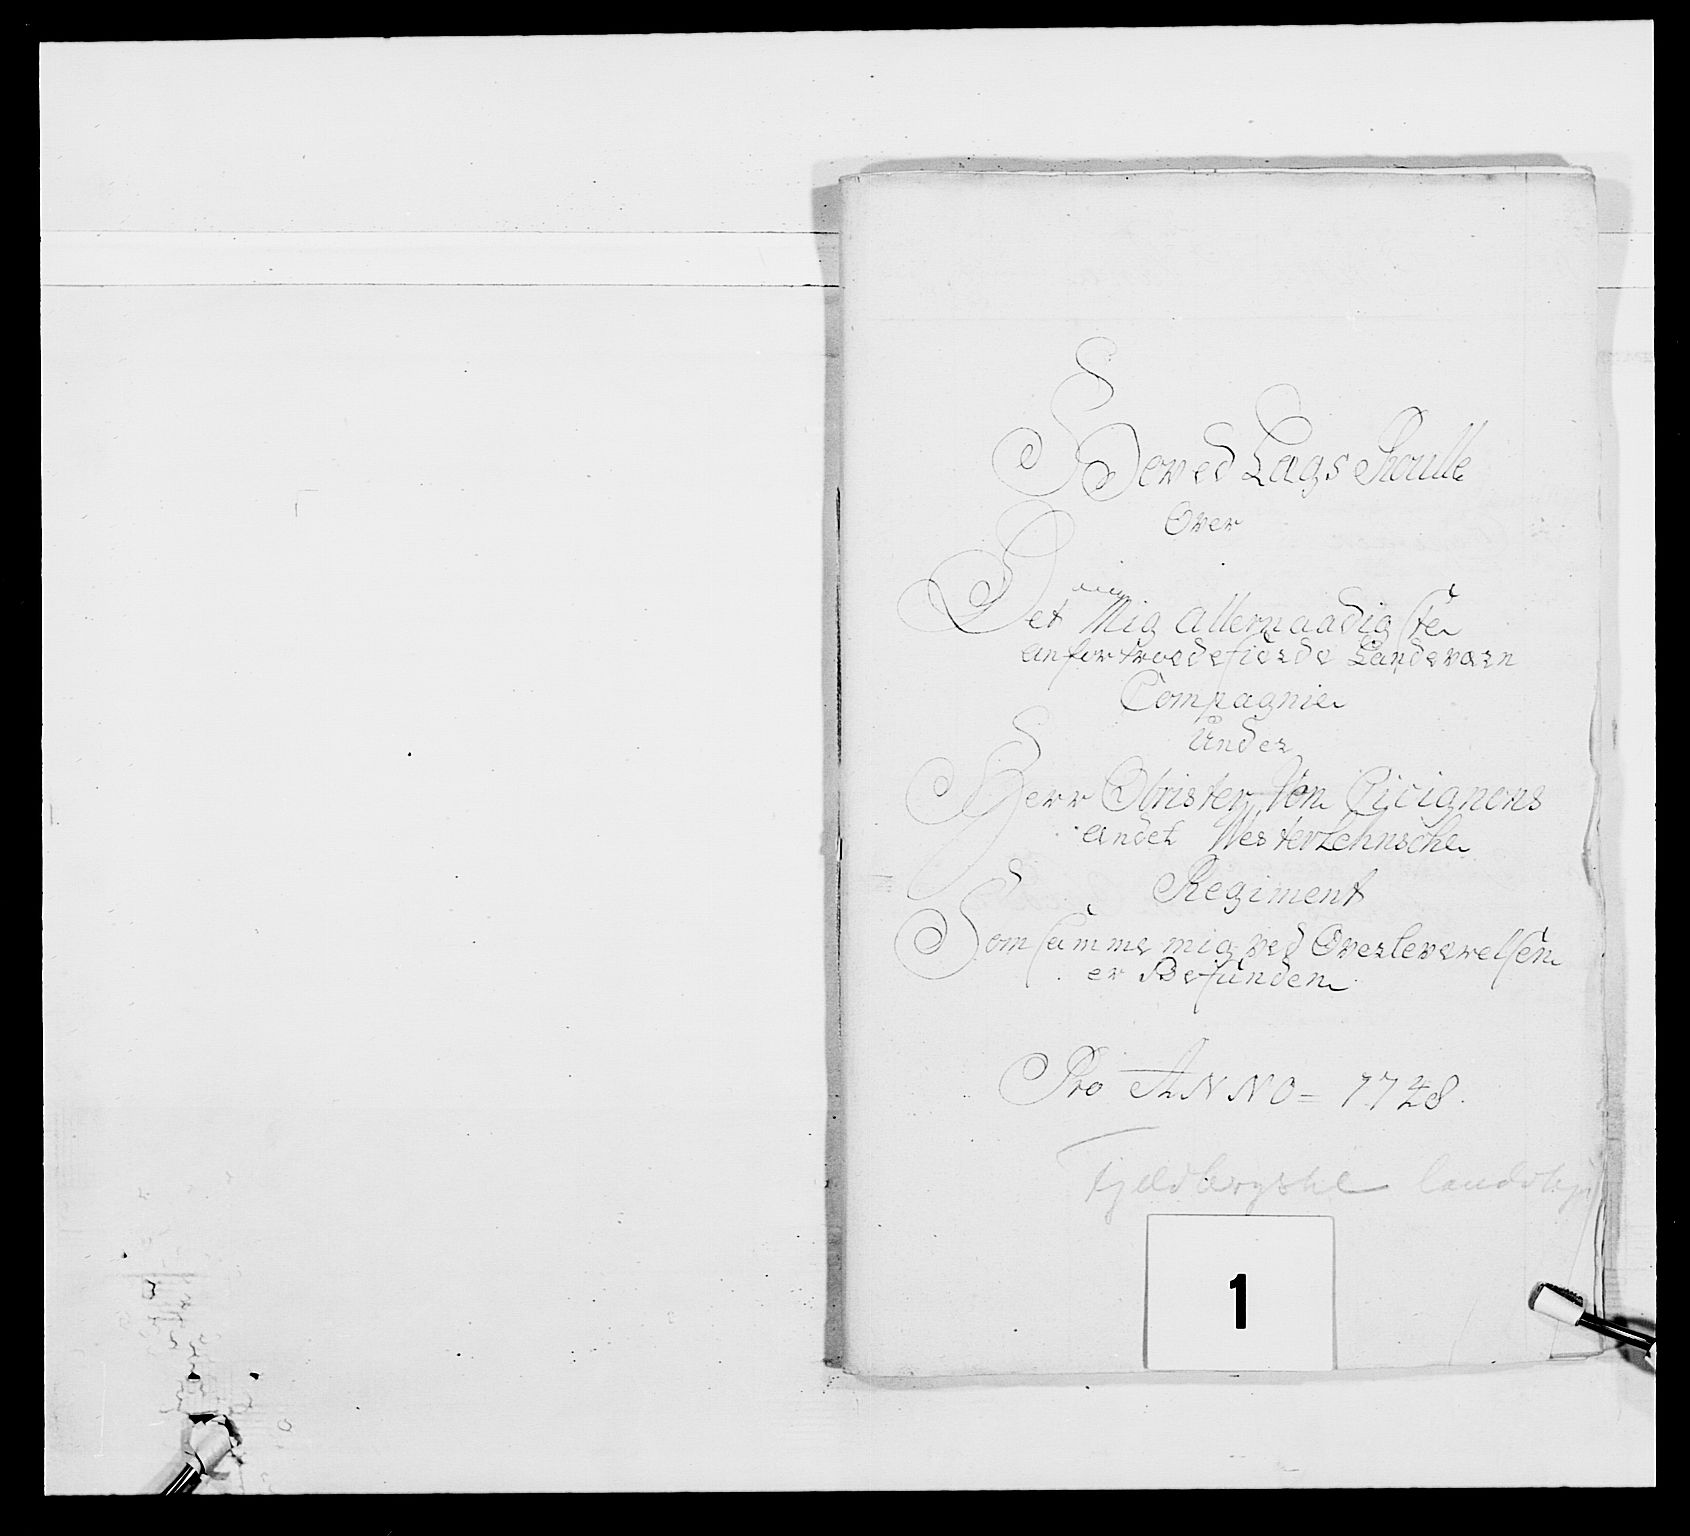 Hoved Lags Roulle
Over
Det Mig allernaadigste
anfortroede fierde Landeværn
Compagnie
Under
Herr Obrister Von Cicignons
andet Westerlehnsche
Regiment
Som samme mig ved Overleverelsen
er Befunden
Pro ANNO = 1748.
Fjeldbergske
1